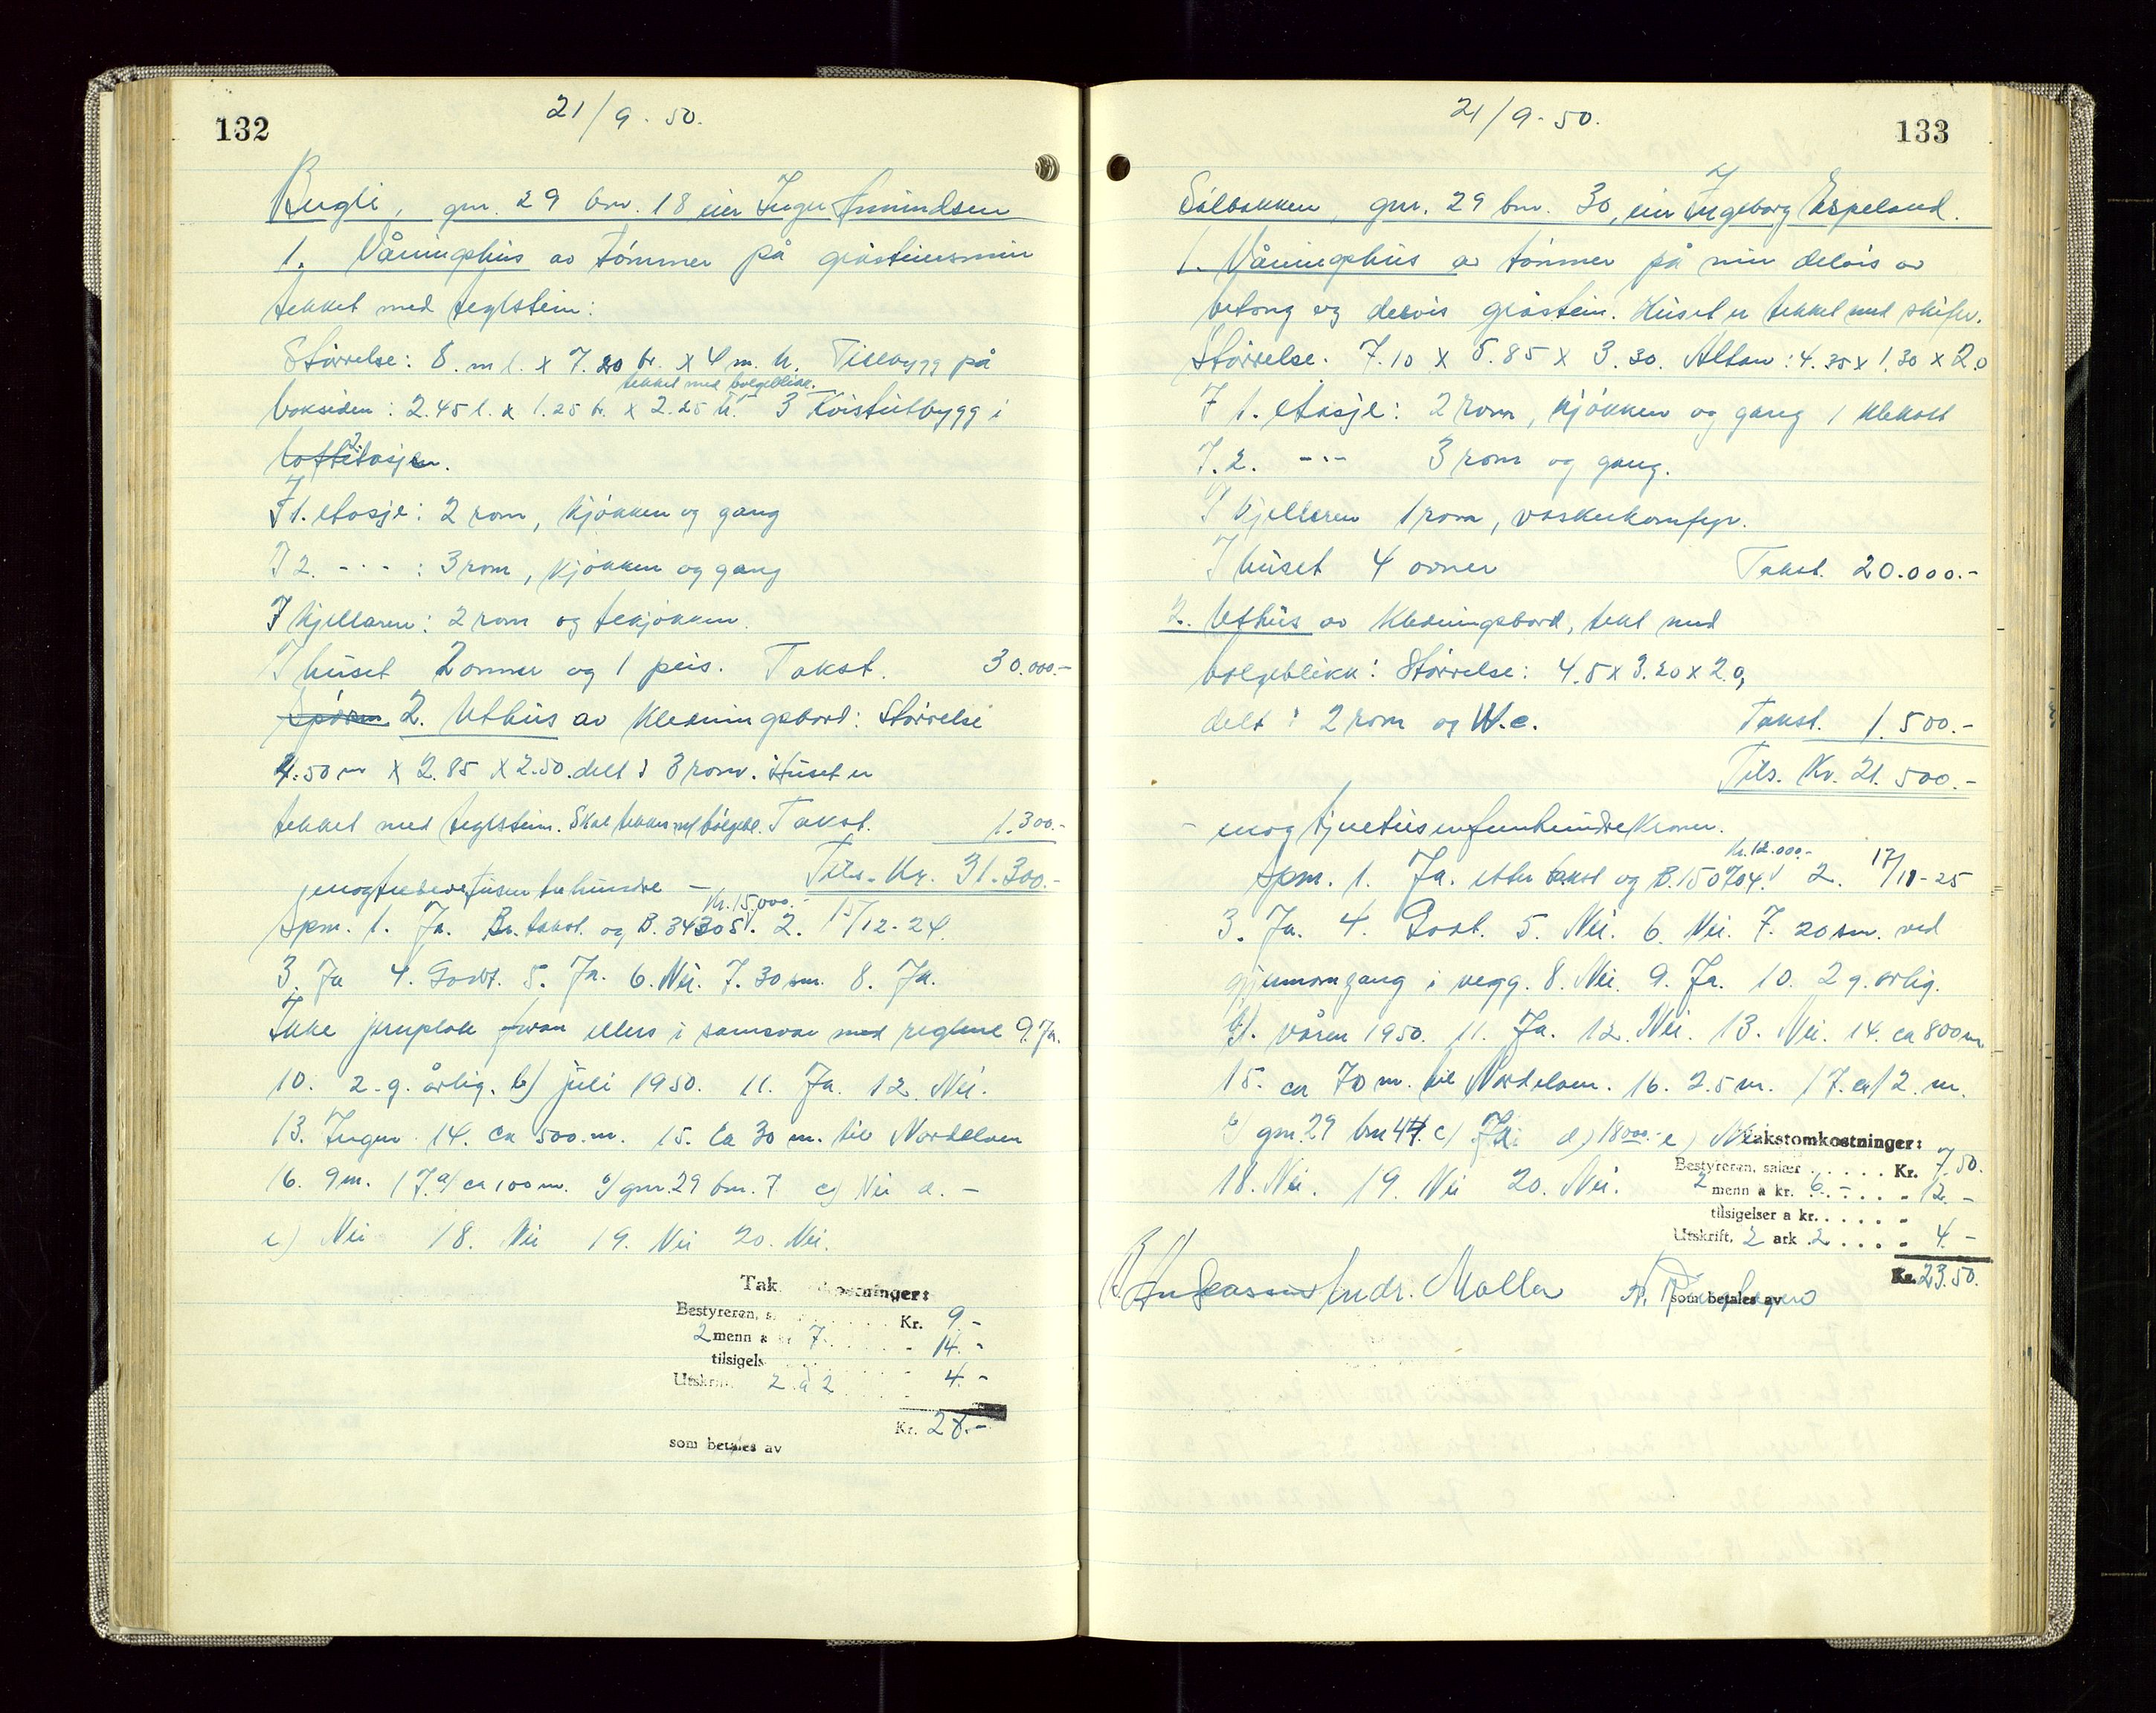 132
21/9. 50.
Bugli, gnr. 29 bnr. 18 eier Inger Amundsen
1. Våningshus av tømmer på gråsteinsmur
tekket med teglstein:
Størrelse: 8. m l. x 7.20 br. x 4 m. h. Tilbygg på
tekket med bølgeblikk.
baksiden: 2.45 l. x 1.25 br. x 2.25 h. 3 Kvistutbygg i
2.
loftetasjen.
I 1. etasje: 2 rom, kjøkken og gang
I 2. -..- : 3 rom, kjøkken og gang
I kjellaren: 2 rom og tekjøkken.
I huset 2 ovner og 1 peis. Takst. 30.000.-
2. Uthus av kledningsbord: Størrelse
4.50 m x 2.85 x 2.50. delt i 3 rom. Huset er
tekket med teglstein. Skal tekkes m/ bølgebl. Takst. 1.300.-
Tils. Kr. 31.300.-
enogtredevetusentrehundre -
Kr. 15.000.-
Spm. 1. Ja. Br. takst. og B. 34305. 2. 15/12-24.
3. Ja 4. Godt. 5. Ja. 6. Nei. 7. 30 sm. 8. Ja.
Ikke jernplate foran ellers i samsvar med reglene 9. Ja.
10. 2 g. årlig. b) juli 1950. 11. Ja. 12. Nei.
13. Ingen 14. ca 500.m. 15. Ca 30 m. til Nordelven
16. 9m. 17. a) ca 100 m. b) gnr. 29 bnr. 7 c) Nei d. -
e) Nei 18. Nei 19. Nei 20. Nei.
Tak ostninger:
Bestyreren, s. Kr. 9.-
2 menn a kr 7. - 14.-
tilsigels
Utskri 2 á 2 - 4.-
Kr. 28.-
som betales av
133
21/9-50.
Sólbakken, gnr. 29 bnr. 30, eier Ingeborg Espeland.
1. Våningshus av tømmer på mur delvis av
betong og delvis gråstein. Huset er tekket med skifer.
Størrelse. 7.10 x 5.85 x 3.30. Altan: 4.35 x 1.30 x 2.0
I 1. etasje: 2 rom, kjøkken og gang 1 klekott
I. 2. -..- 3 rom og gang.
I kjelleren 1 rom, vaskekomfyr.
I huset 4 ovner Takst. 20.000.-
2. Uthus av kledningsbord, tekt med
bølgeblikk: Størrelse: 4.5 x 3.20 x 2.0,
delt i 2 rom og W.c. Takst. 1.500.-
Tils. Kr. 21.500.-
- enogtjuetusenfemhundreKroner.
Kr. 12.000.-
Spm. 1. Ja. etter takst og B. 150704. 2. 17/11-25
3. Ja. 4. Godt. 5. Nei. 6. Nei. 7. 20 sm. ved
gjennomgang i vegg. 8. Nei. 9. Ja. 10. 2 g. årlig.
b). våren 1950. 11. Ja. 12. Nei. 13. Nei. 14. ca 800 m
15. ca 70 m. til Nordelven. 16. 2.5 m. 17. ca 12. m.
b) gnr. 29 bnr 44. c) Ja. d) 18000.- e) Nei
18. Nei. 19. Nei 20. Nei.
Takstomkostninger:
Bestyreren, salær ..... Kr. 7.50.
2 menn a kr. 6.- ... - 12.-
tilsigelser a kr. ..... -
Utskrift, 2 ark 2 .... - 4.-
Kr. 23.50.
som betales av
Andr. Malla